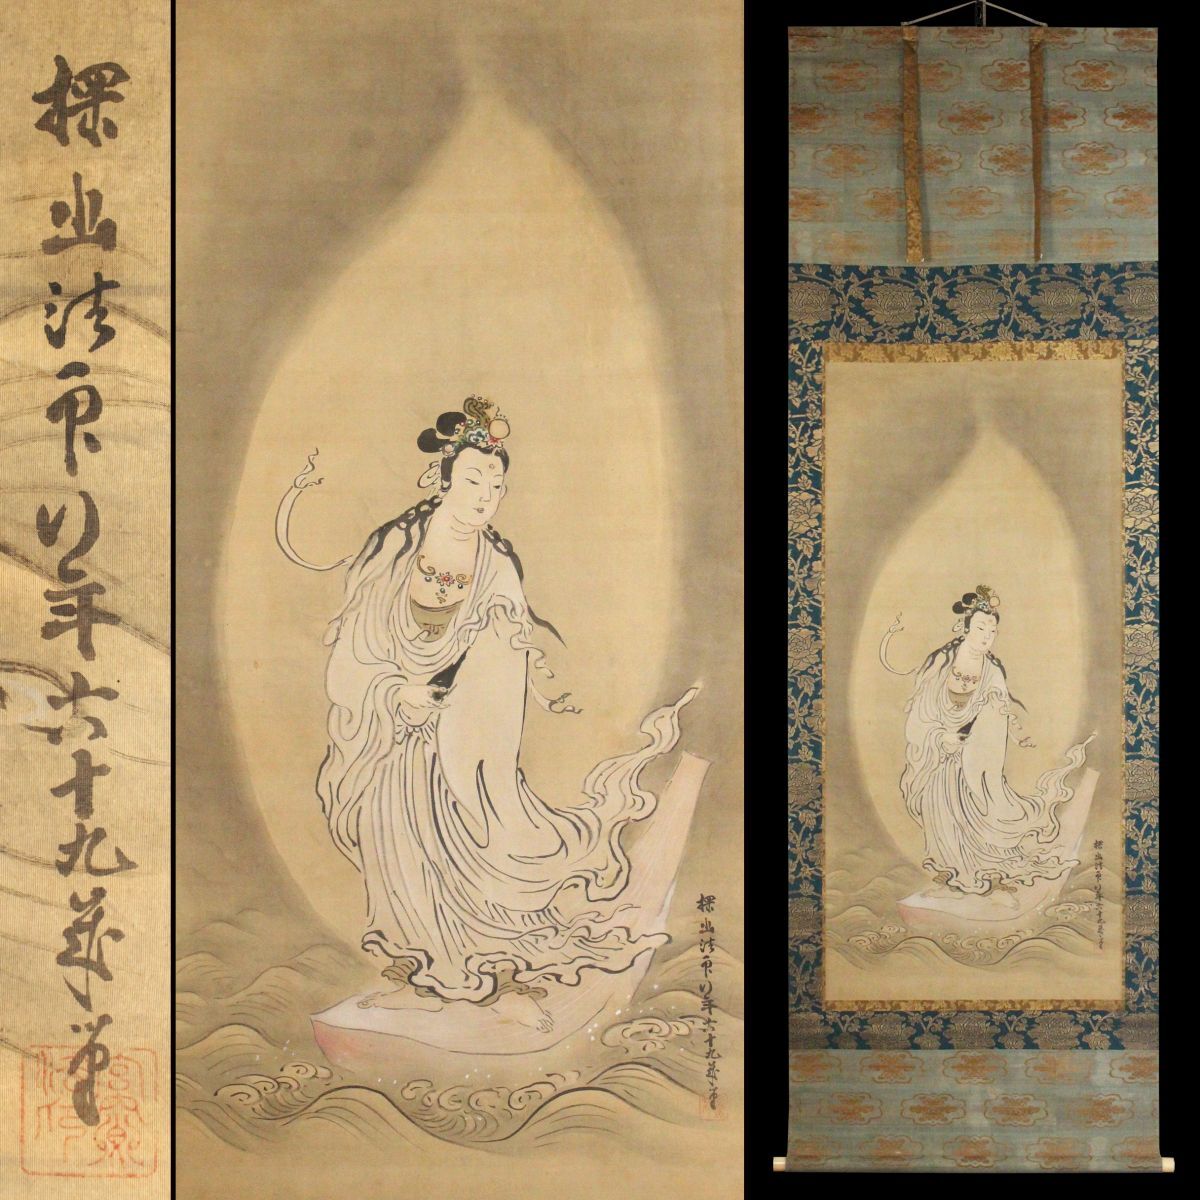 探幽法印行年六十九歳筆
宮内卿法印
探幽法印行年六十九歳筆
探幽法印行年六十九歳筆